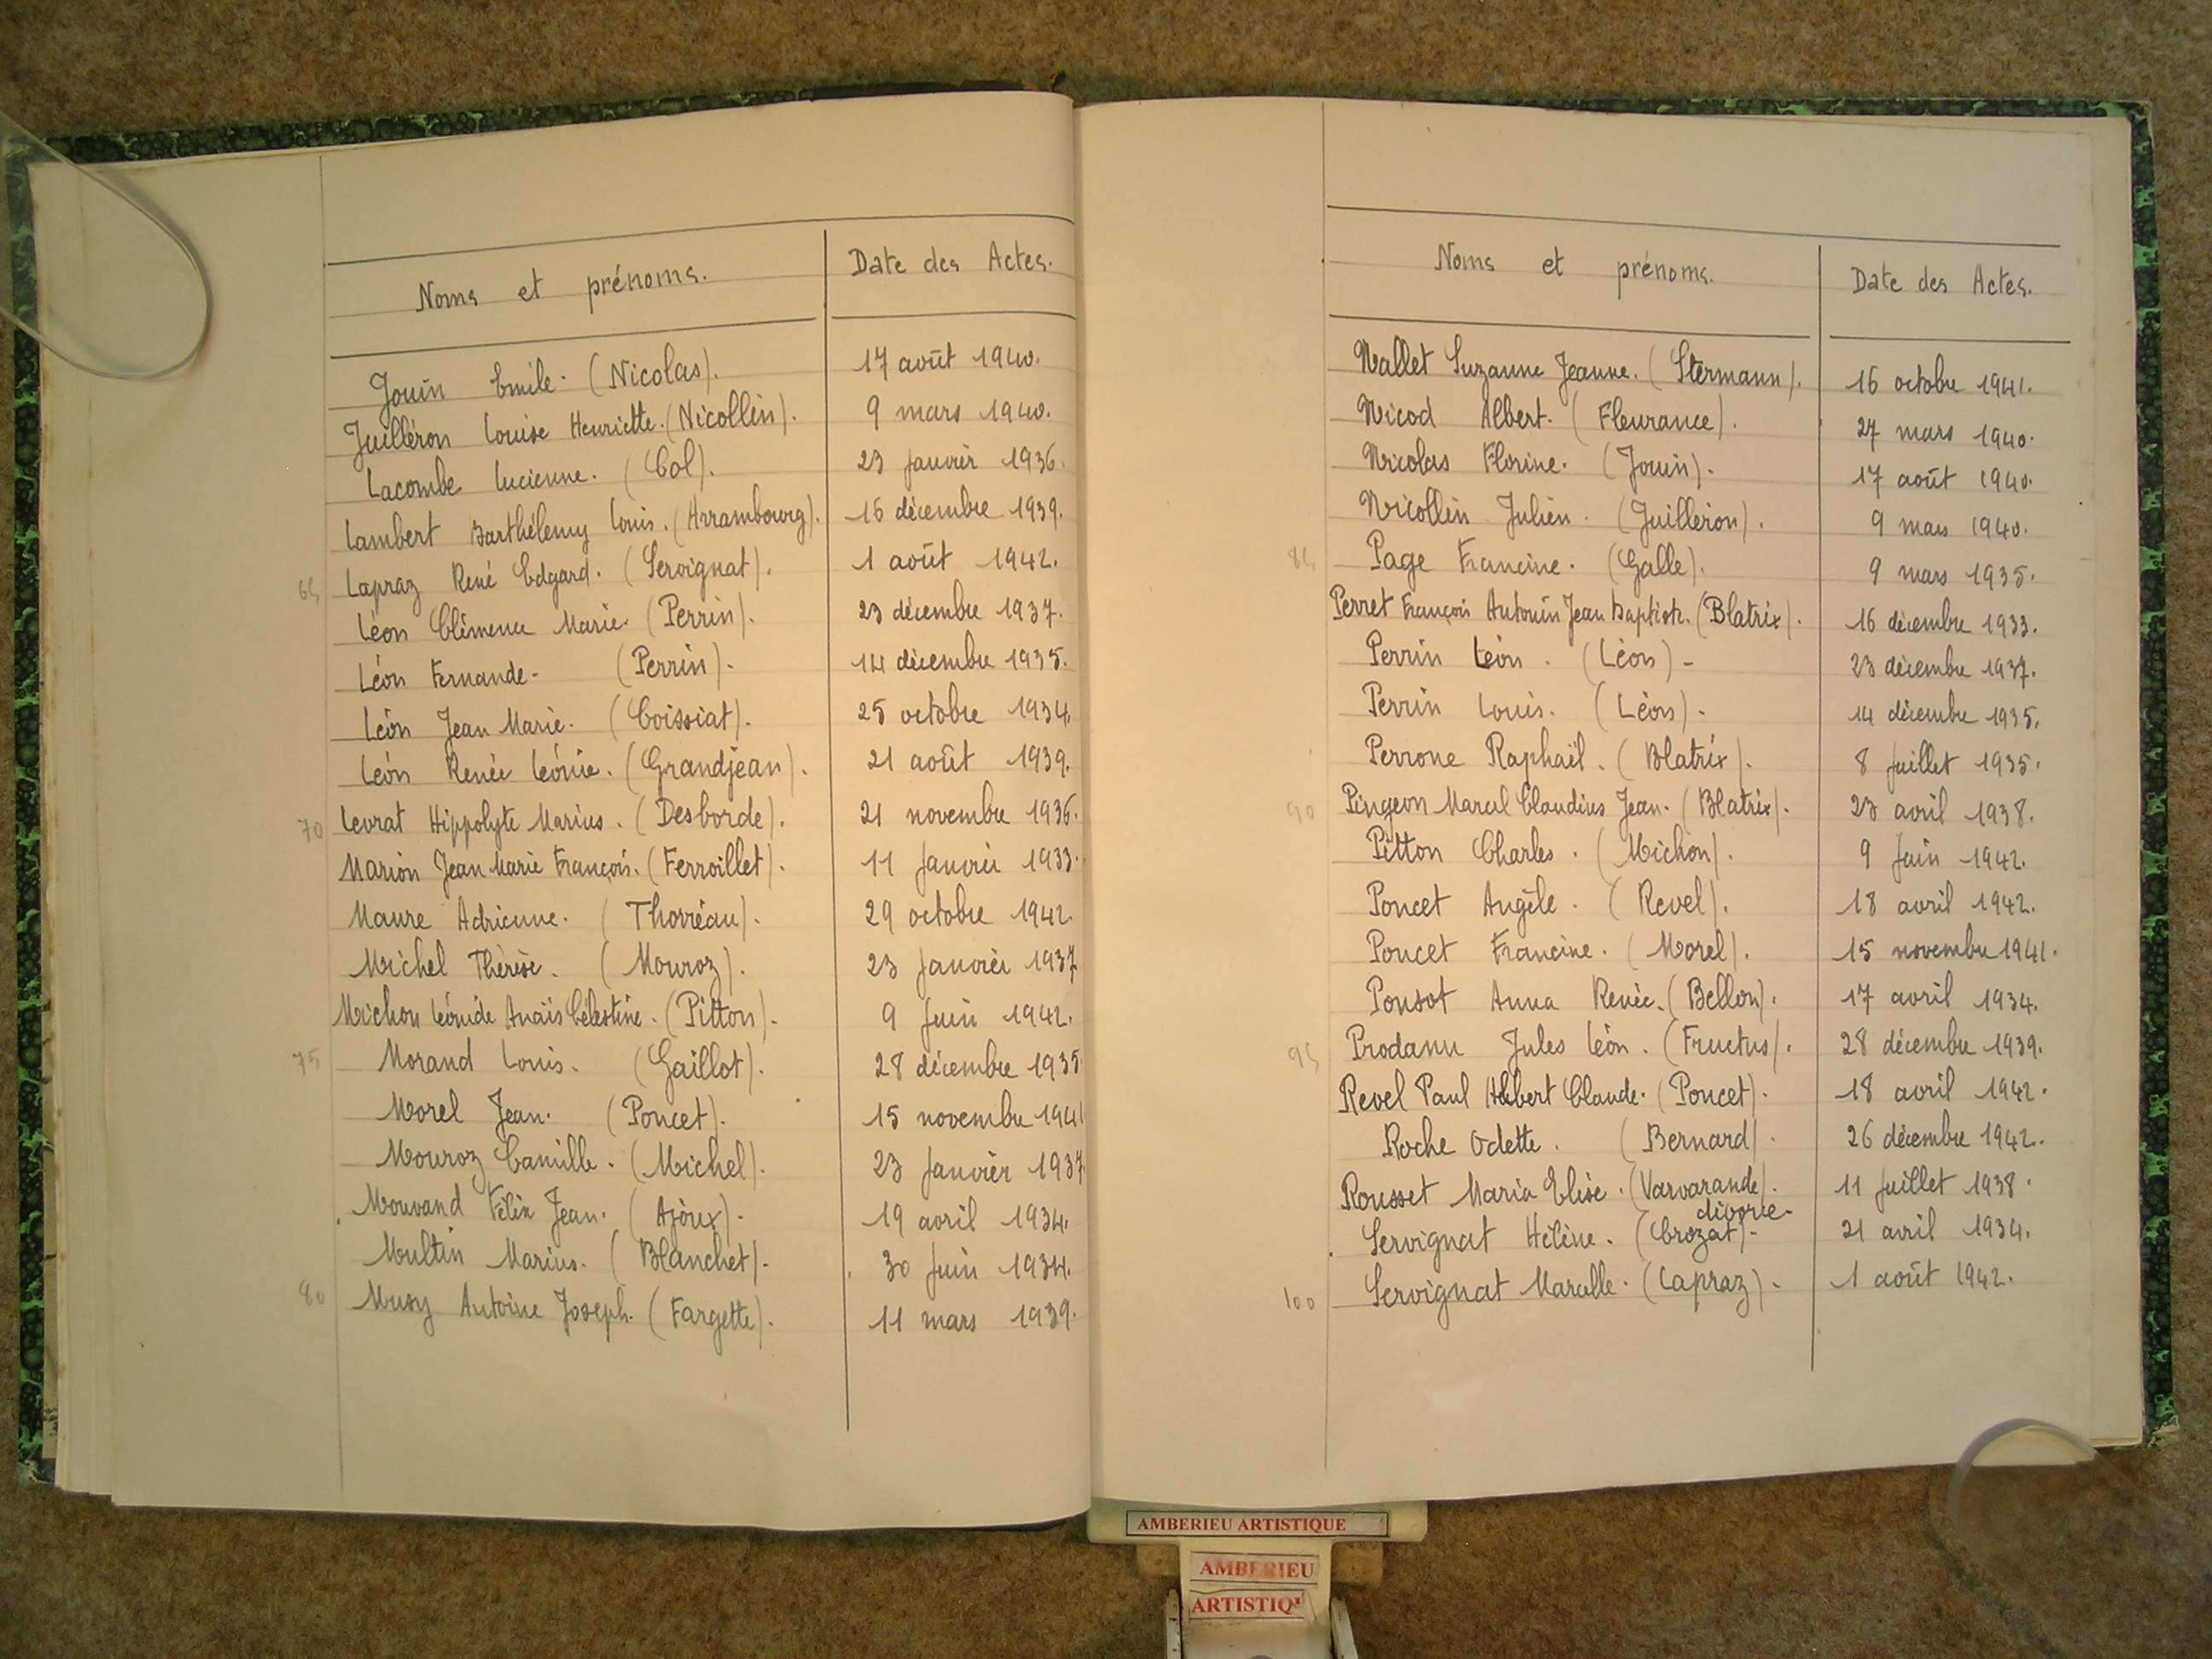 Noms et prénoms. Date des Actes.
Jouin Emile. (Nicolas). 17 août 1940.
Juilléron Louise Henriette. (Nicollin). 9 mars 1940.
Lacombe Lucienne. (Col). 23 janvier 1936.
Lambert Barthélemy Louis. (Arrambourg). 16 décembre 1939.
65 Lapraz René Edgard. (Servignat). 1 août 1942.
Léon Clémence Marie. (Perrin). 23 décembre 1937.
Léon Fernande. (Perrin). 14 décembre 1935.
Léon Jean Marie. (Coissiat). 25 octobre 1934.
Léon Renée Léonie. (Grandjean). 21 août 1939.
70 Levrat Hippolyte Marius. (Desborde). 21 novembre 1936.
Marion Jean Marie François. (Ferroillet). 11 janvier 1933.
Maure Adrienne. (Thorréau). 29 octobre 1942.
Michel Thérèse. (Mouroz). 23 janvier 1937
Michon Léonide Anaïs Célestine. (Pitton). 9 juin 1942.
75 Morand Louis. (Gaillot). 28 décembre 1935
Morel Jean. (Poncet). 15 novembre 1941
Mouroz Camille. (Michel). 23 janvier 1937
Mouvand Félix Jean. (Ajoux). 19 avril 1934.
Multin Marius. (Blanchet). 30 juin 1934.
80 Musy Antoine Joseph. (Fargette). 11 mars 1939.
Noms et prénoms. Date des Actes.
Nallet Suzanne Jeanne. (Stermann). 16 octobre 1941.
Nicod Albert. (Fleurance). 27 mars 1940.
Nicolas Florine. (Jouin). 17 août 1940.
Nicollin Julien. (Juilléron). 9 mars 1940.
85 Page Francine. (Galle). 9 mars 1935.
Perret François Antonin Jean Baptiste. (Blatrix). 16 décembre 1933.
Perrin Léon. (Léon). 23 décembre 1937.
Perrin Louis. (Léon). 14 décembre 1935.
Perrone Raphaël. (Blatrix). 8 juillet 1935.
90 Pingeon Marcel Claudius Jean. (Blatrix). 23 avril 1938.
Pitton Charles. (Michon). 9 juin 1942.
Poncet Angèle. (Revel). 18 avril 1942.
Poncet Francine. (Morel). 15 novembre 1941.
Ponsot Anna Renée. (Bellon). 17 avril 1934.
95 Prodanu Jules Léon. (Fructus). 28 décembre 1939.
Revel Paul Claude. (Poncet). 18 avril 1942.
Roche Odette. (Bernard). 26 décembre 1942.
Rousset Maria Elise. (Varvarande). 11 juillet 1938.
divorce.
Servignat Hélène. (Crozat). 21 avril 1934.
100 Servignat Marcelle. (Lapraz). 1 août 1942.
AMBERIEU ARTISTIQUE
AMBERIEU
ARTISTIQ